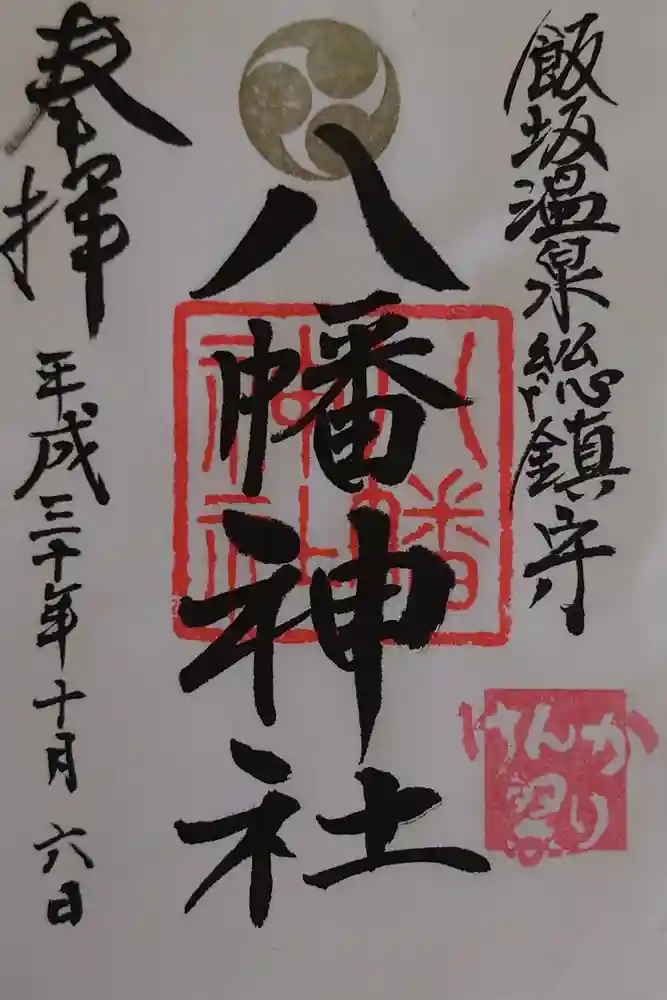 飯坂温泉総鎮守
八幡神社
八幡神社
けんか祭り
奉拝
平成三十年十月六日